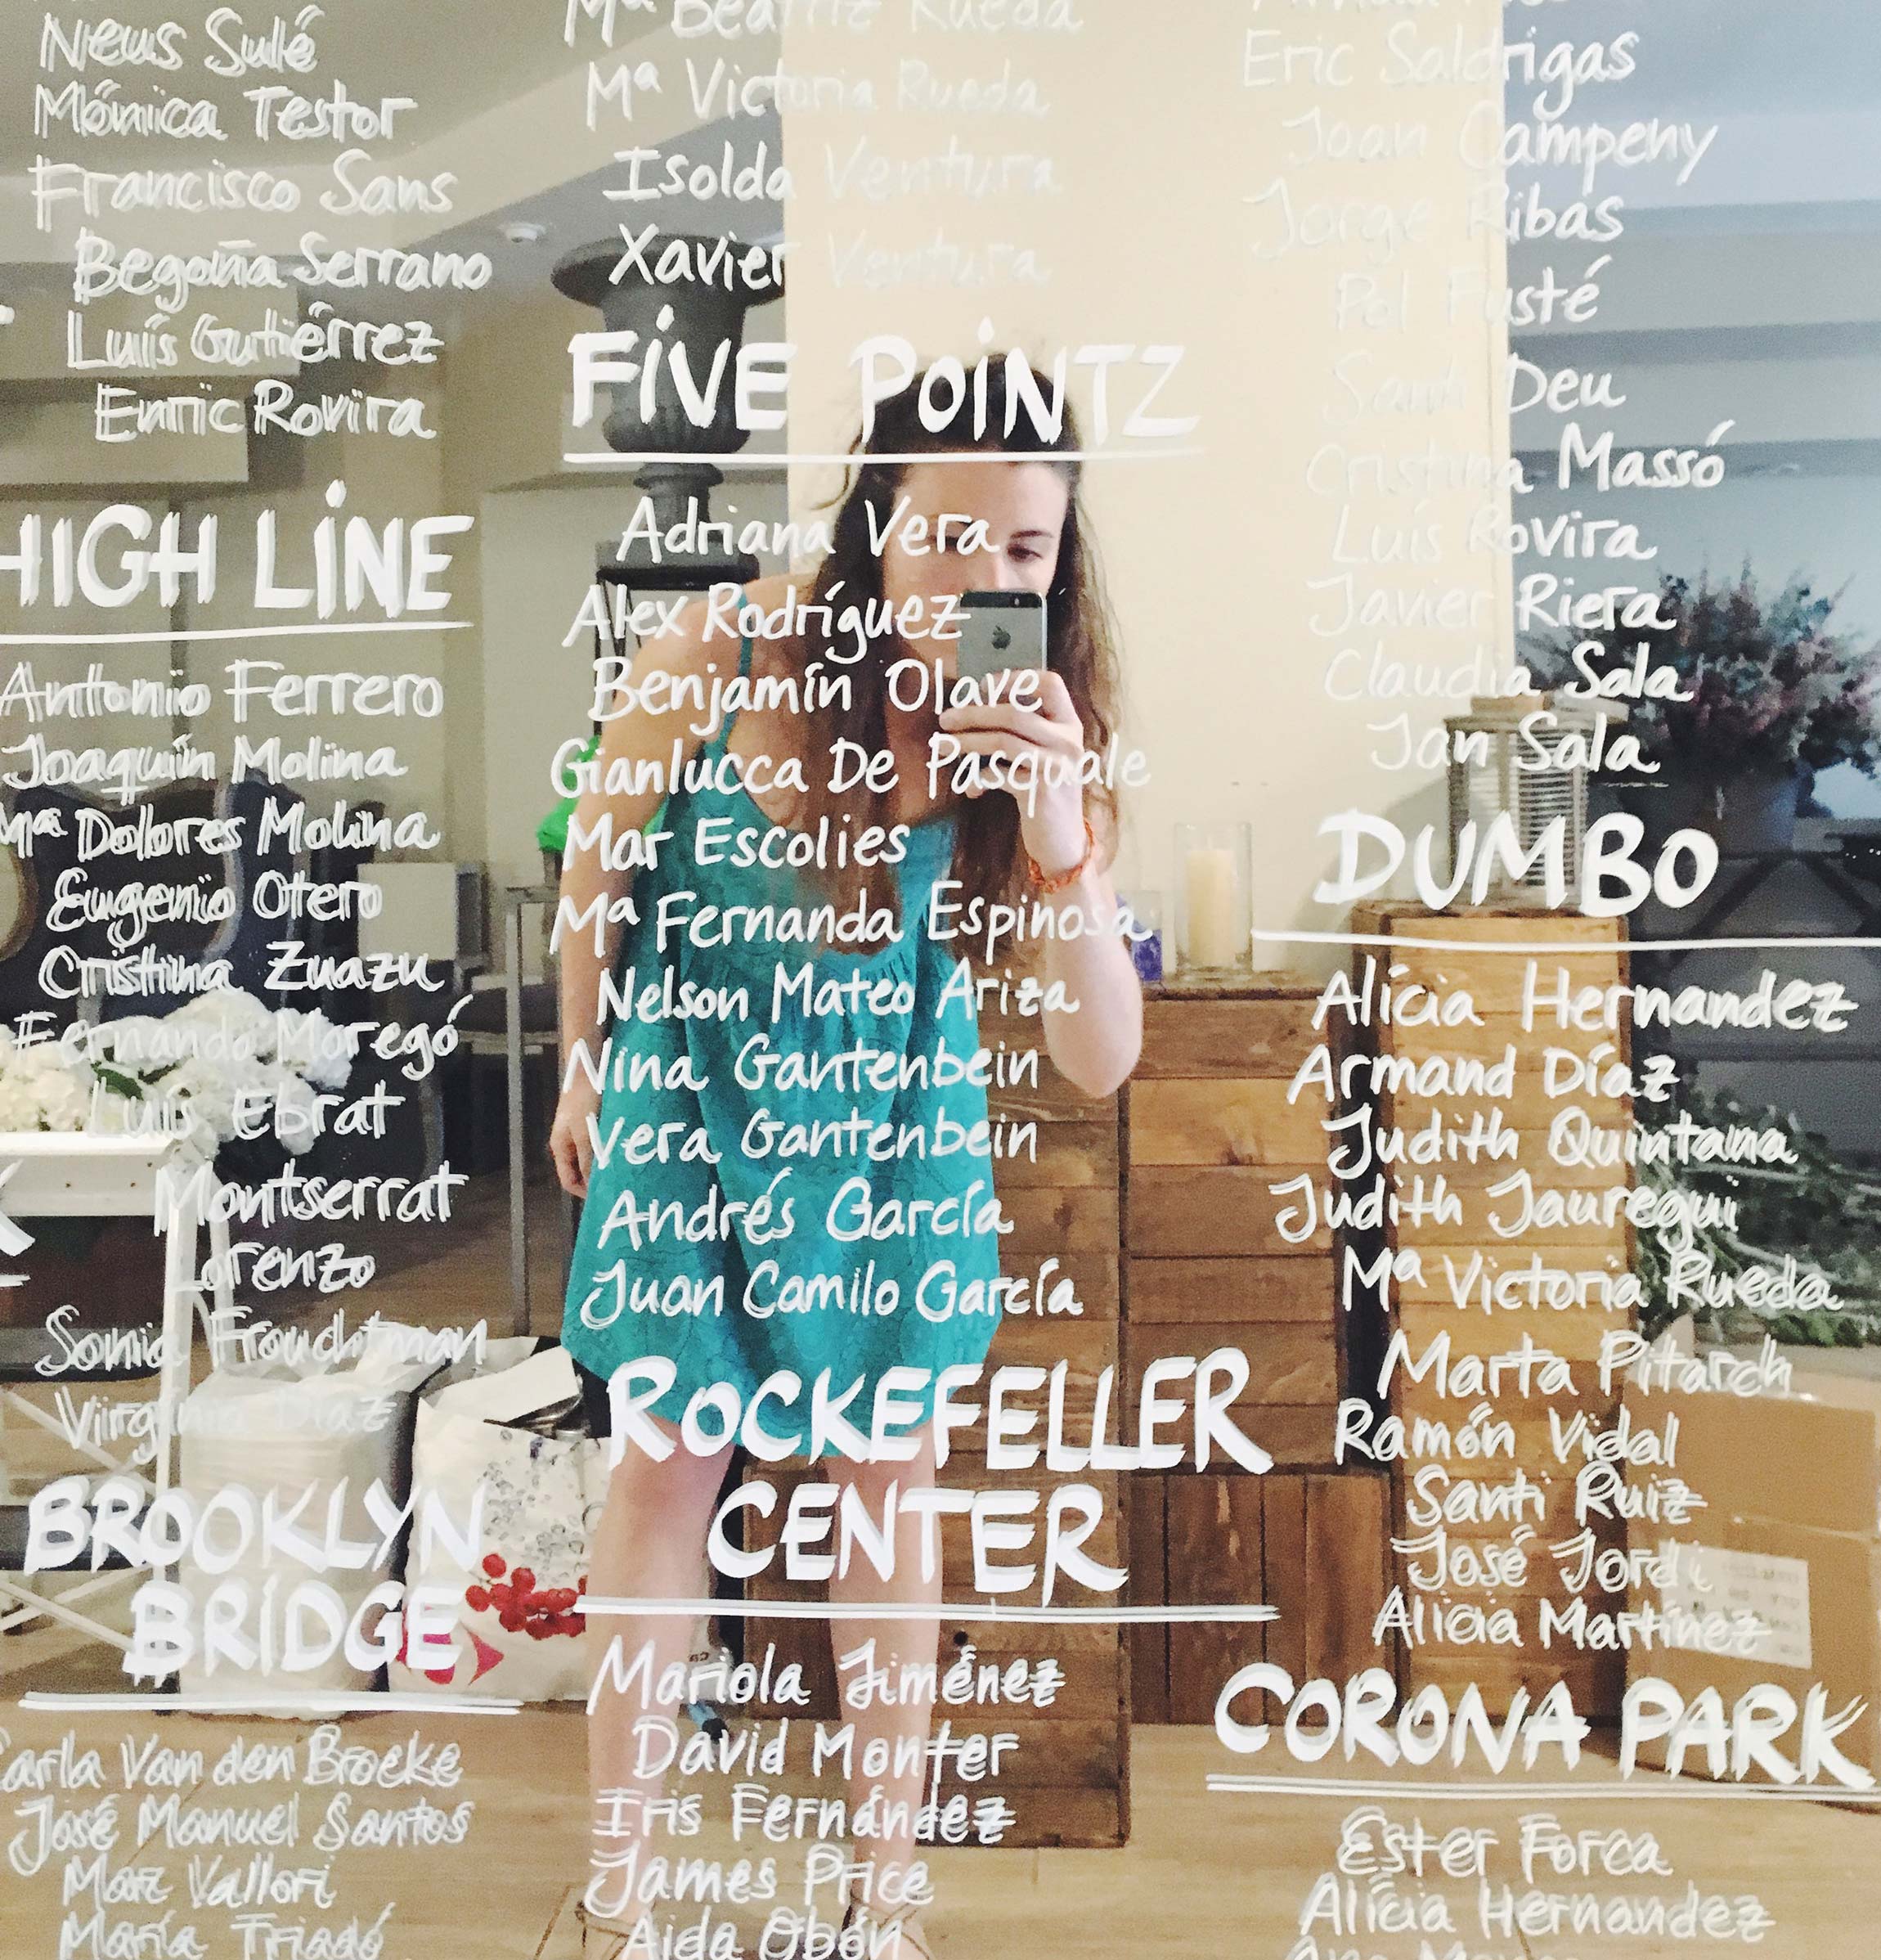 Neus Sulé
Mónica Testor
Francisco Sans
Begoña Serrano
Luís Gutiérrez
Enric Rovira
HIGH LINE
Antonio Ferrero
Joaquín Molina
Mª Dolores Molina
Eugenio Otero
Cristina Zuazu
Fernando Moregó
Luís Ebrat
Montserrat
Lorenzo
Sonia Frouchtman
Virginia Díaz
BROOKLYN
BRIDGE
Carla Van den Broeke
José Manuel Santos
Mar Vallori
María Triadó
Mª Beatriz Rueda
Mª Victoria Rueda
Isolda Ventura
Xavier Ventura
FIVE POINTZ
Adriana Vera
Alex Rodríguez
Benjamín Olave
Gianlucca De Pasquale
Mar Escolies
Mª Fernanda Espinosa
Nelson Mateo Ariza
Nina Gantenbein
Vera Gantenbein
Andrés García
Juan Camilo García
ROCKEFELLER
CENTER
Mariola Jiménez
David Monter
Iris Fernández
James Price
Aida Obón
Eric Saldrigas
Joan Campeny
Jorge Ribas
Pol Fusté
Santi Deu
Cristina Massó
Luís Rovira
Javier Riera
Claudia Sala
Jan Sala
DUMBO
Alícia Hernandez
Armand Díaz
Judith Quintana
Judith Jauregui
Mª Victoria Rueda
Marta Pitarch
Ramón Vidal
Santi Ruiz
José Jordi
Alicia Martínez
CORONA PARK
Ester Forca
Alícia Hernandez